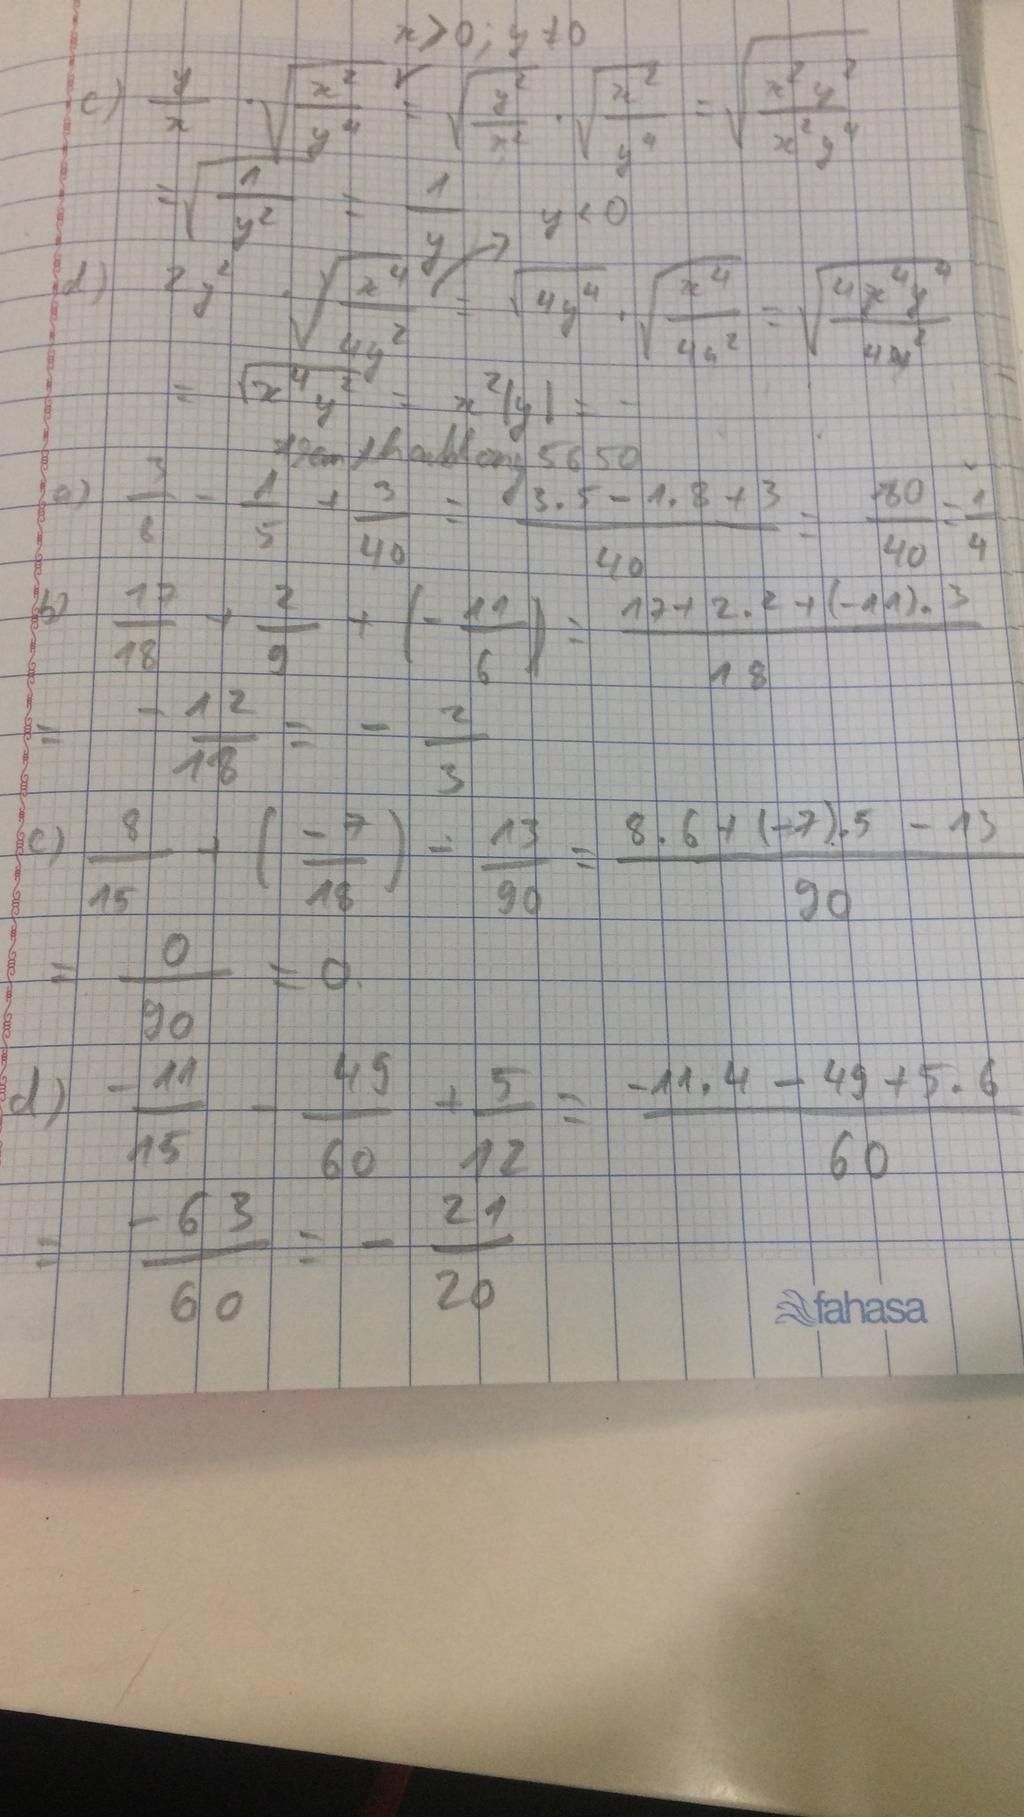 x > 0 ; y ≠ 0
c) y/x · √(x²/y⁴) = √(y²/x²) · √(x²/y⁴) = √(x²y²/x²y⁴)
= √(1/y²) = 1/y y < 0
d) 2y² · √(x⁴/4y²) = √4y⁴ · √(x⁴/4y²) = √(4x⁴y⁴/4y²)
= √x⁴y² = x²|y| = -
5650
a) 3/8 - 1/5 + 3/40 = (3.5 - 1.8 + 3)/40 = 80/40 = 1/4
b) 17/18 + 2/9 + (-11/6) = (17 + 2.2 + (-11).3)/18
= -12/18 = -2/3
c) 8/15 + (-7/18) - 13/90 = (8.6 + (-7).5 - 13)/90
= 0/90 = 0.
d) -11/15 - 49/60 + 5/12 = (-11.4 - 49 + 5.6)/60
= -63/60 = -21/20
fahasa